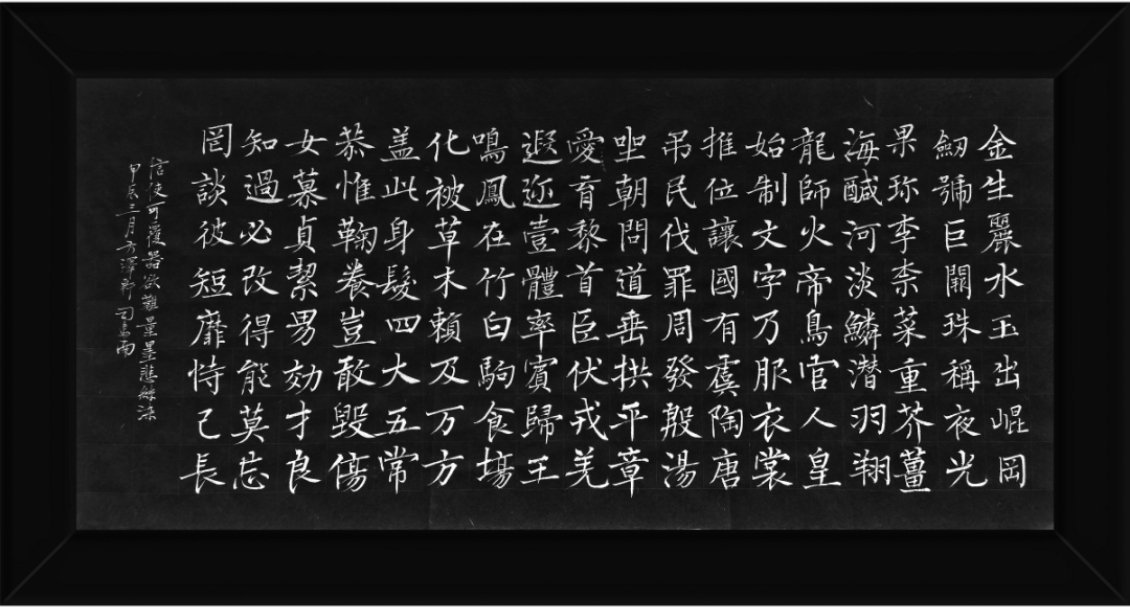 金生麗水玉出崐岡
劒號巨闕珠稱夜光
果珎李柰菜重芥薑
海醎河淡鱗潜羽翔
龍師火帝鳥官人皇
始制文字乃服衣裳
推位讓國有虞陶唐
吊民伐罪周發殷湯
坐朝問道垂拱平章
愛育黎首臣伏戎羌
遐迩壹體率賓歸王
鳴鳳在竹白駒食場
化被草木賴及万方
盖此身髮四大五常
恭惟鞠養豈敢毀傷
女慕貞絜男効才良
知過必改得能莫忘
罔談彼短靡恃己長
信使可覆器欲難量墨悲絲染
甲辰三月方澤